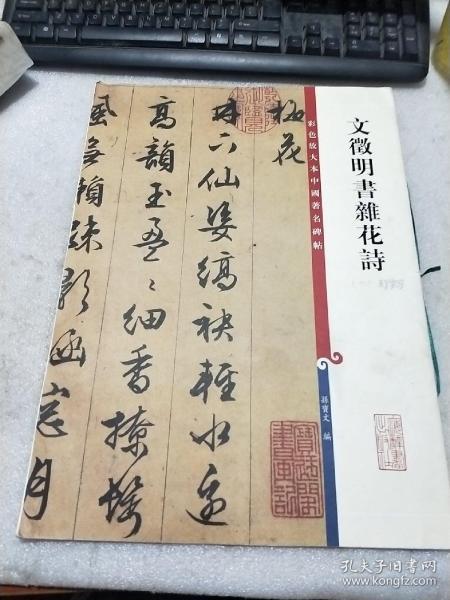 文徵明書雜花詩
彩色放大本中國著名碑帖
孫寶文 編
梅花
林下仙姿縞袂輕水邊
高韻玉盈〻細香撩鬢
風無賴疎影涵窓月
孔夫子旧书网
www.kongfz.com